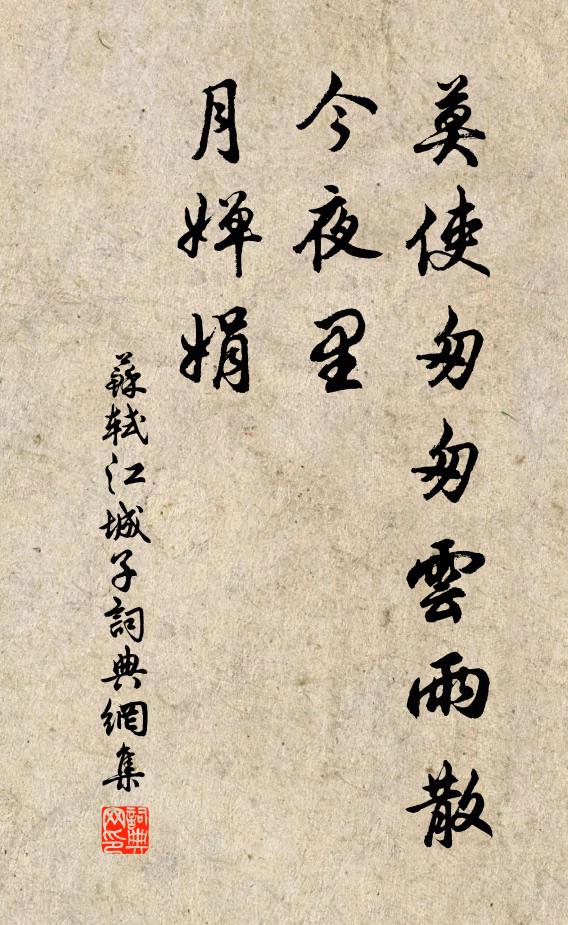 莫使匆匆雲雨散
今夜里
月嬋娟
蘇軾江城子詞典網集
詞典网印